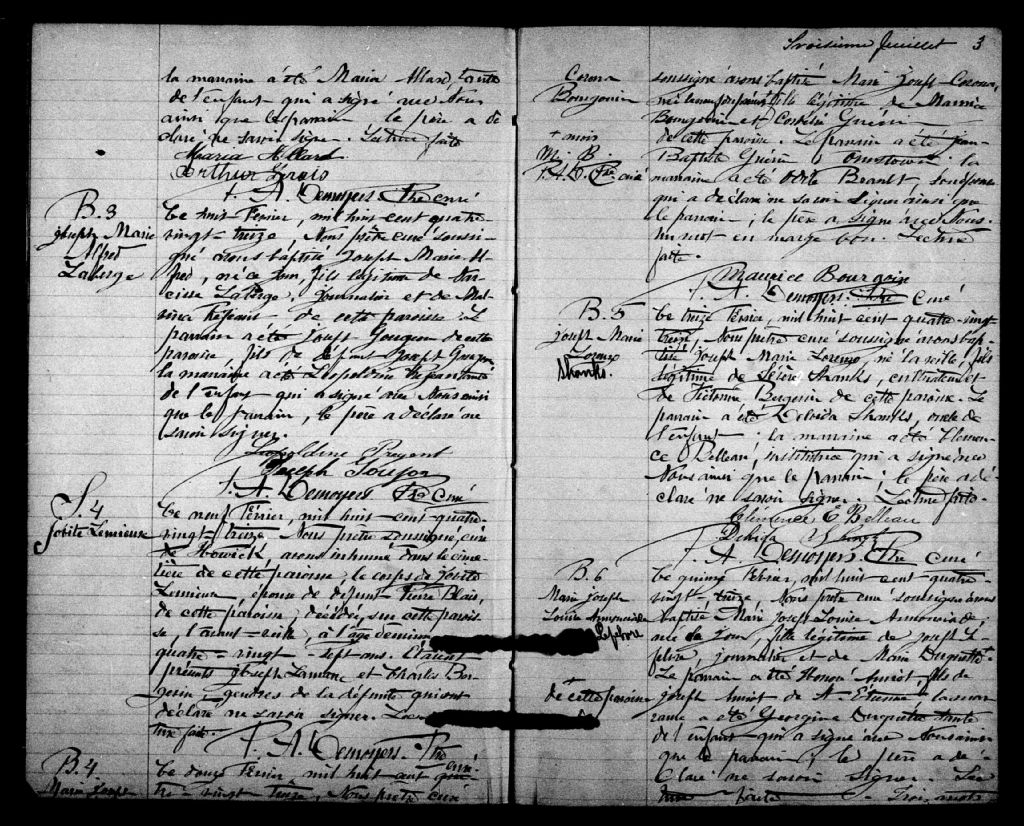 la marraine a été Maria Allard, tante
de l'enfant qui a signé avec Nous
ainsi que le parrain le père a dé
claré ne savoir signer. Lecture faite
Maria Allard
Arthur
F. A. Demoyers Ptre curé
B. 3
Joseph Marie
Alfred
Laberge
Le huit Février, mil huit cent quatre-
vingt-treize, Nous prêtre curé soussi-
gné avons baptisé Joseph Marie Al-
fred, né ce jour, fils légitime de Nar-
cisse Laberge, journalier et de Mal-
vina de cette paroisse. Le
parrain a été Joseph Goujon de cette
paroisse, fils de défunt Joseph Goujon
la marraine a été Léopoldine tante
de l'enfant qui a signé avec Nous ainsi
que le parrain, le père a déclaré ne
savoir signer.
Léopoldine Prégent
Joseph Goujon
F. A. Demoyers Ptre curé
S. 4
Jovite Lemieux
Le neuf Février, mil huit cent quatre-
vingt-treize Nous prêtre soussigné, curé
de Howick, avons inhumé dans le cime-
tière de cette paroisse, le corps de Jovite
Lemieux, épouse de défunt Pierre Blais,
de cette paroisse, décédée sur cette parois-
se, l'avant-veille, à l'âge d'environ
quatre-vingt-sept ans. Etaient
présents Joseph et Charles Ber-
gevin, gendres de la défunte qui ont
déclaré ne savoir signer. Lec-
ture faite.
F. A. Demoyers. Ptre
curé
B. 4
Marie Joseph
Le douze Février, mil huit cent qua-
tre-vingt treize, Nous prêtre curé
Troisième feuillet 3
Corona
Bourgouin
+ mois
M. B.
F. A. D. Ptre curé
soussigné avons baptisé Marie Joseph Corona,
fille légitime de Maurice
Bourgouin et Guérin
de cette paroisse. Le parrain a été Jean
Baptiste Guérin, Ormstown: la
marraine a été Odile Breault, son épouse
qui a déclaré ne savoir signer ainsi que
le parrain; le père a signé avec Nous.
Un mot en marge bon. Lecture
faite.
Maurice Bourgoin
F. A. Demoyers. Ptre Curé
B. 5
Joseph Marie
Lorenzo
Shanks.
Le treize Février, mil huit cent quatre-vingt
treize, Nous prêtre curé soussigné avons bap-
tisé Joseph Marie Lorenzo, né la veille, fils
légitime de Shanks, cultivateur et
de Victorine Bergevin de cette paroisse. Le
parrain a été Shanks, oncle de
l'enfant; la marraine a été Clémen-
ce E Belleau, institutrice qui a signé avec
Nous ainsi que le parrain; le père a dé-
claré ne savoir signer. Lecture faite.
Clémence E Belleau
F. A. Demoyers. Ptre curé
B. 6
Marie Joseph
Louise Annonciade
Lefebvre
+
de cette paroisse
Le quinze Février, mil huit cent quatre
vingt-treize Nous prêtre curé soussigné avons
baptisé Marie Joseph Louise Annonciade,
née ce jour, fille légitime de Joseph Le-
febvre journalier et de Marie Duquette +
Le parrain a été Honoré fils de
Joseph de St-Etienne la mar-
raine a été Georgina Duquette tante
de l'enfant qui a signé avec Nous ainsi
que le parrain; le père a dé-
claré ne savoir signer. Lec
ture faite. Trois mots